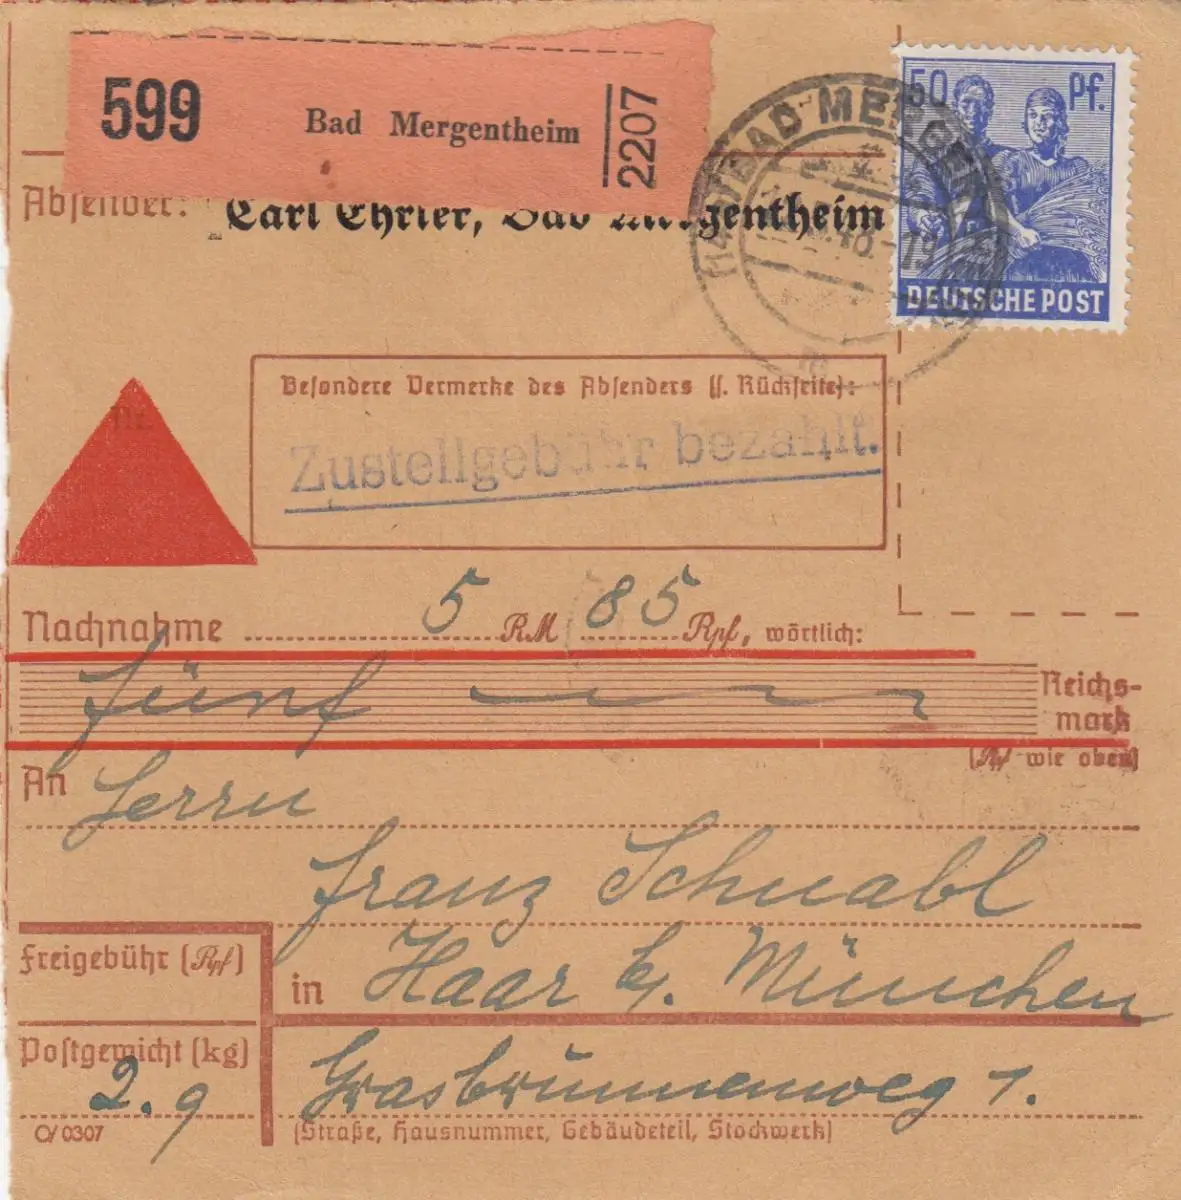 599
Bad Mergentheim
2207
50 Pf.
DEUTSCHE POST
BAD MERGENTHEIM
48.-19
Absender:
Carl Ehrler, Bad Mergentheim
Nr.
Besondere Vermerke des Absenders (s. Rückseite):
Zustellgebühr bezahlt.
Nachnahme 5 RM 85 Rpf, wörtlich:
fünf
Reichs-
mark
(Rpf wie oben)
An Herrn
Franz Schnabl
Freigebühr (Rpf)
in Haar b. München
Postgewicht (kg)
2.9
Grasbrunnenweg 1.
(Straße, Hausnummer, Gebäudeteil, Stockwerk)
C/0307